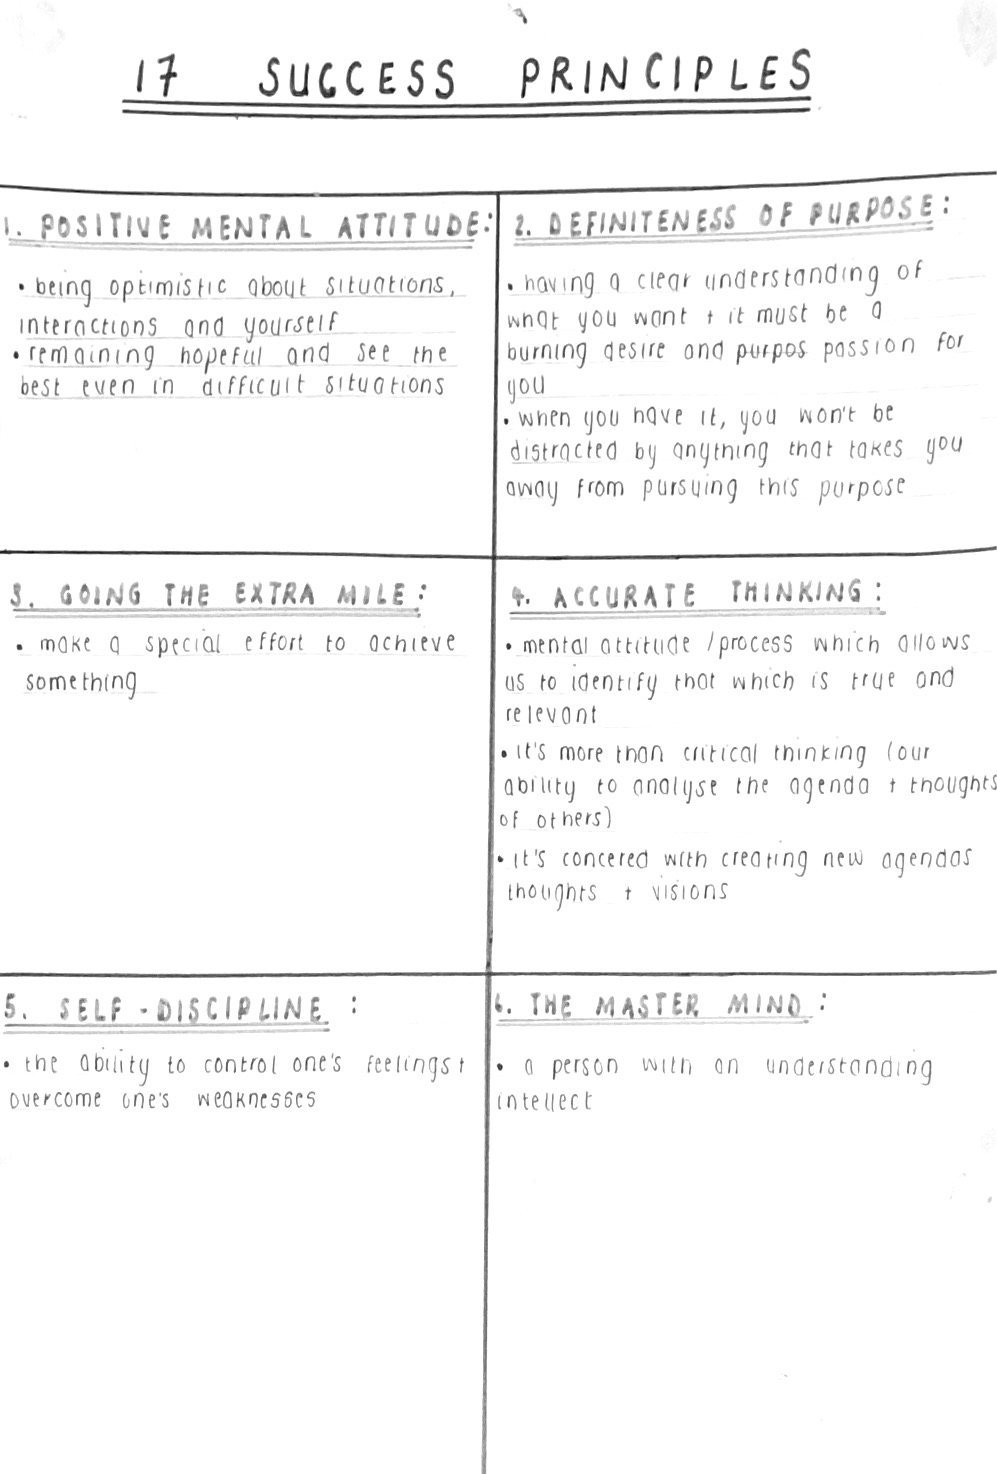 17 SUCCESS PRINCIPLES
1. POSITIVE MENTAL ATTITUDE:
• being optimistic about situations,
interactions and yourself
• remaining hopeful and see the
best even in difficult situations
2. DEFINITENESS OF PURPOSE:
• having a clear understanding of
what you want + it must be a
burning desire and purpos passion for
you
• when you have it, you won't be
distracted by anything that takes you
away from pursuing this purpose
3. GOING THE EXTRA MILE:
• make a special effort to achieve
something
4. ACCURATE THINKING:
• mental attitude /process which allows
us to identify that which is true and
relevant
• it's more than critical thinking (our
ability to analyse the agenda + thoughts
of others)
• it's concered with creating new agendas
thoughts + visions
5. SELF-DISCIPLINE :
• the ability to control one's feelings +
overcome one's weaknesses
6. THE MASTER MIND :
• a person with an understanding
intellect